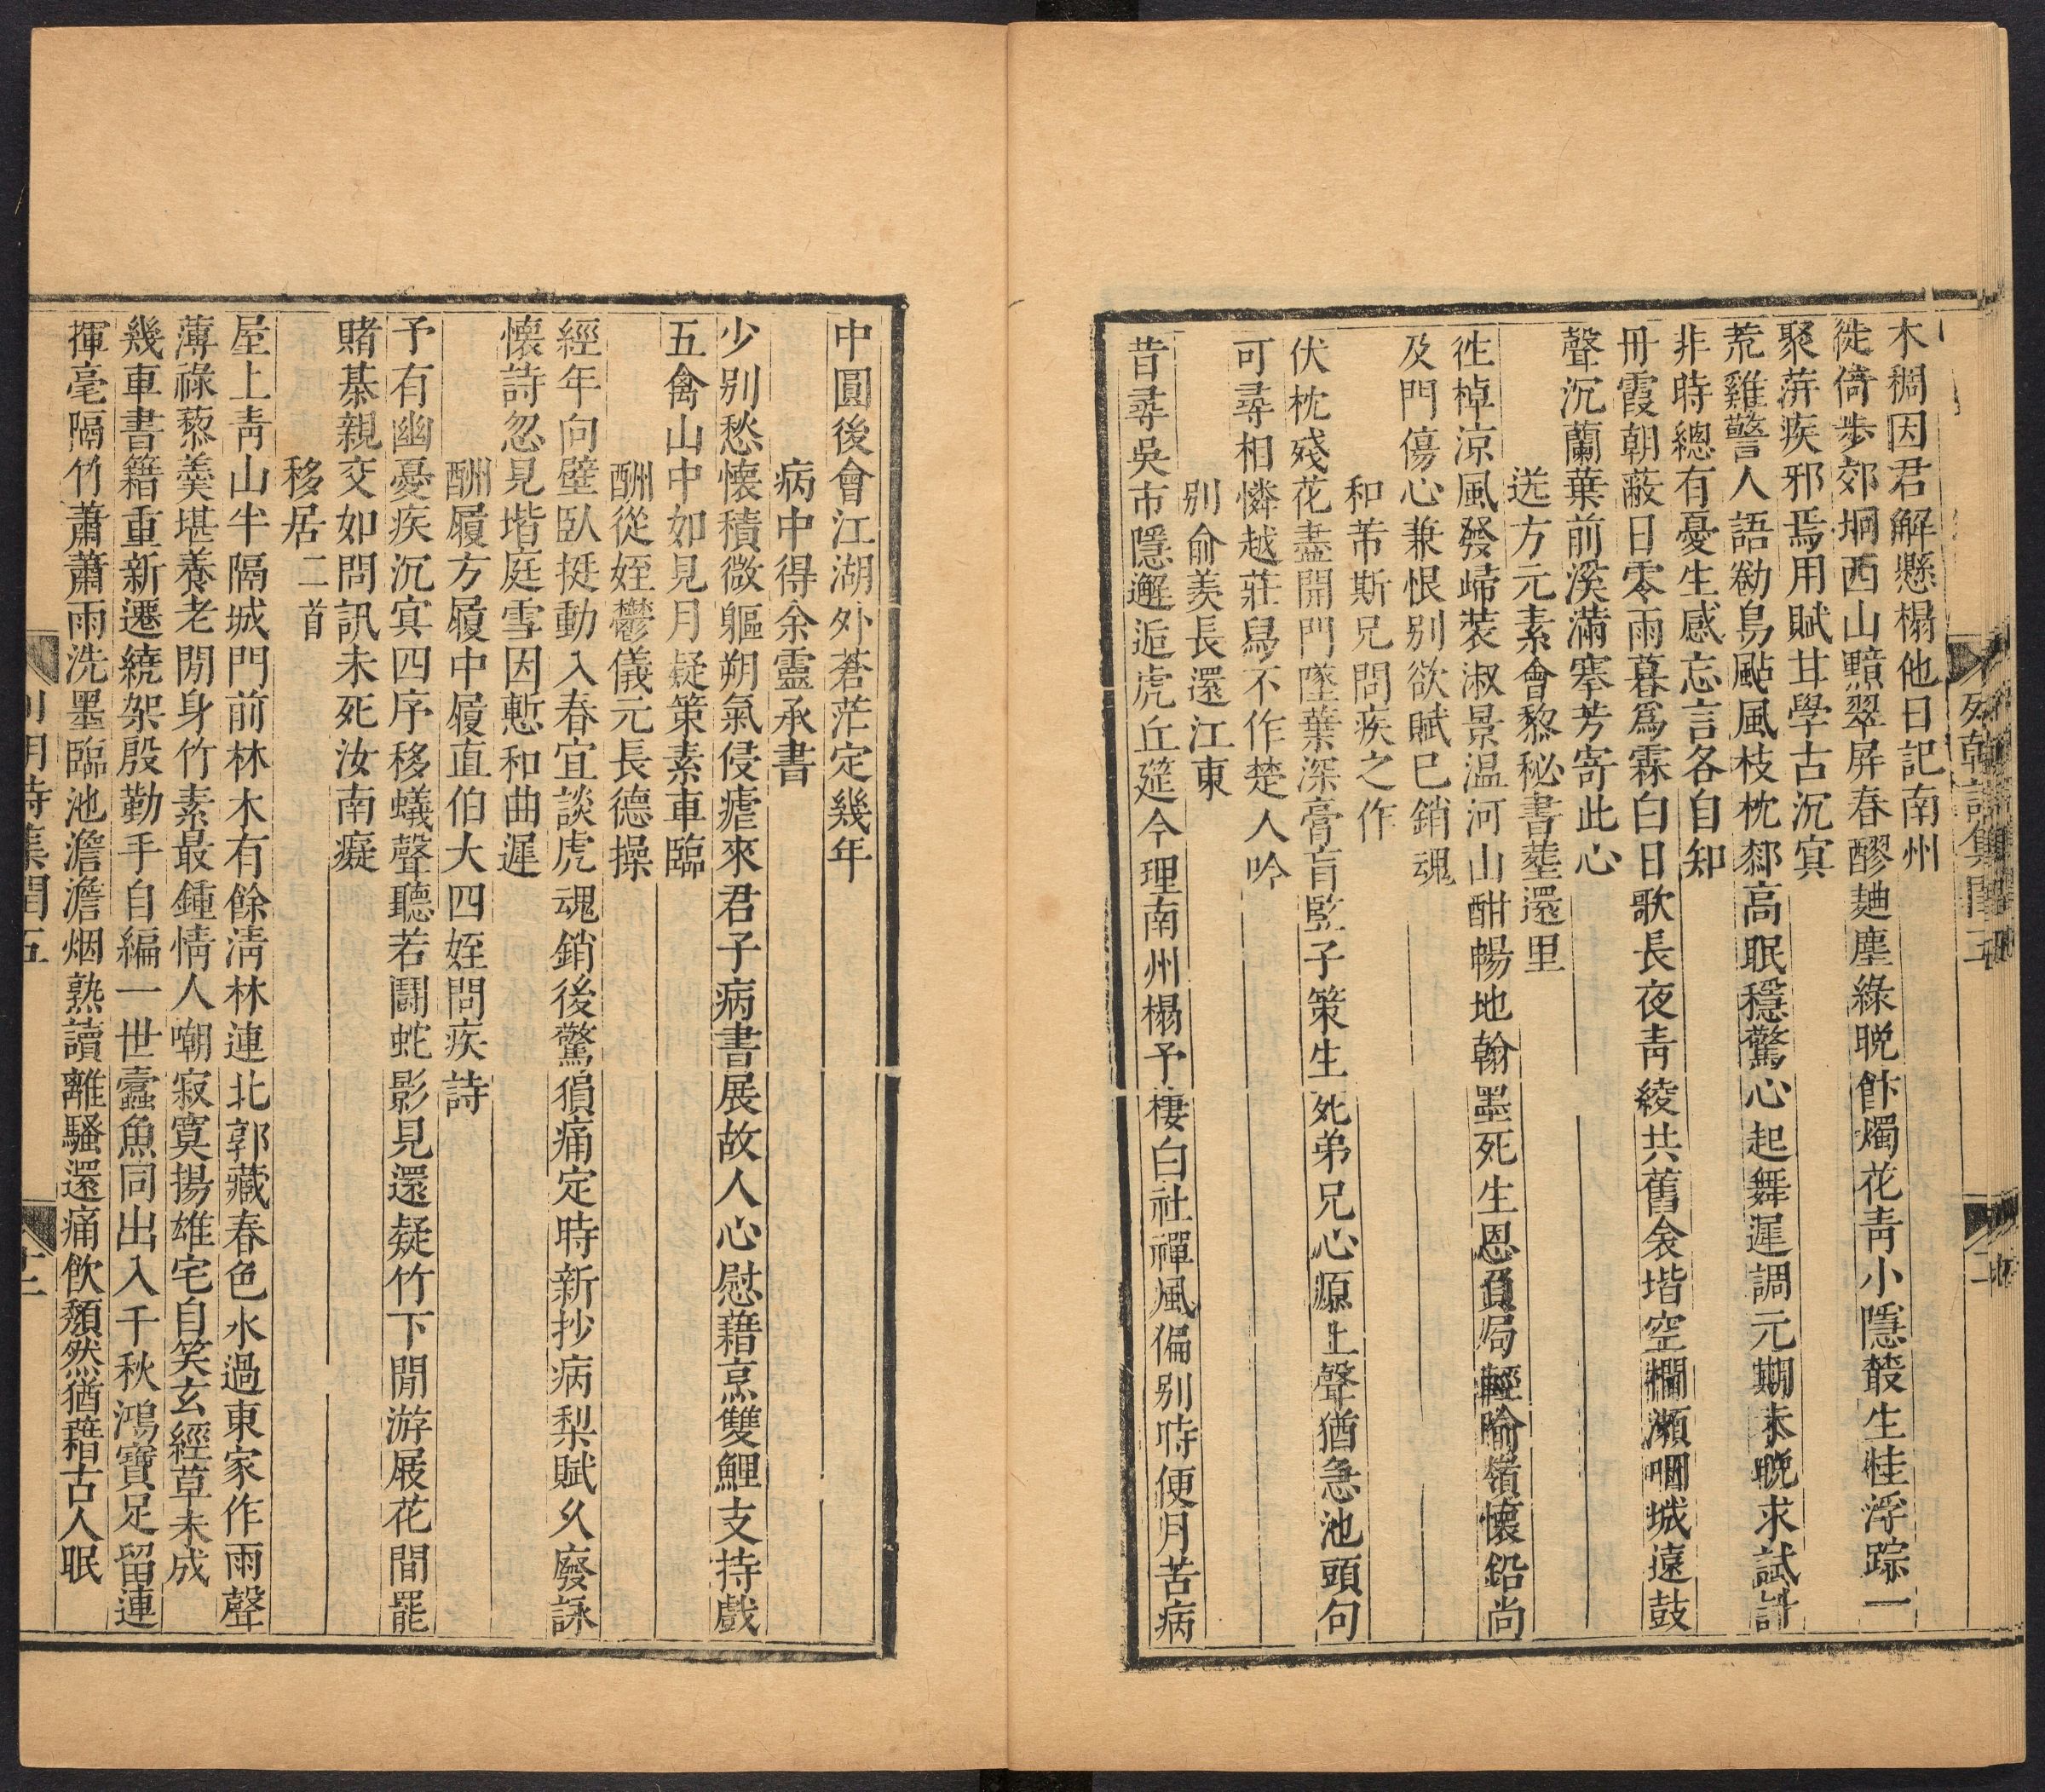 列朝詩集閏五
木稠因君解懸榻他日記南州
徙倚步郊坰西山黯翠屏春醪麯塵綠晚飰燭花靑小隱叢生桂浮踪一
聚蓱疾邪焉用賦甘學古沉冥
荒雞警人語勌鳥颭風枝枕郄高眠穩驚心起舞遲調元期未晚求試計
非時總有憂生感忘言各自知
丹霞朝蔽日零雨暮爲霖白日歌長夜靑綾共舊衾堦空欄瀬咽城遠鼓
聲沉蘭葉前溪滿搴芳寄此心
送方元素會黎秘書塟還里
徃棹凉風發歸裝淑景温河山酣暢地翰墨死生恩負局輕喻嶺懷鉛尚
及門傷心兼恨别欲賦已銷魂
和芾斯兄問疾之作
伏枕殘花盡開門墜葉深膏肓監子策生死弟兄心源上聲猶急池頭句
可尋相憐越莊舄不作楚人吟
别俞羨長還江東
昔尋吳市隱邂逅虎丘筵今理南州榻予棲白社禪風偏别時便月苦病
中圓後會江湖外蒼茫定幾年
病中得余靈承書
少别愁懷積微軀朔氣侵瘧來君子病書展故人心慰藉烹雙鯉支持戲
五禽山中如見月疑策素車臨
酬從姪鬱儀元長德操
經年向壁臥挺動入春宜談虎魂銷後驚猏痛定時新抄病梨賦久廢詠
懷詩忽見堦庭雪因慙和曲遲
酬履方履中履直伯大四姪問疾詩
予有幽憂疾沉宾四序移蟻聲聽若鬭蛇影見還疑竹下閒游屐花間罷
賭棊親交如問訊未死汝南癡
移居二首
屋上靑山半隔城門前林木有餘淸林連北郭藏春色水過東家作雨聲
薄祿藜羹堪養老閒身竹素最鍾情人嘲寂寞揚雄宅自笑玄經草未成
幾車書籍重新遷繞架殷勤手自編一世蠹魚同出入千秋鴻寶足留連
揮毫隔竹蕭蕭雨洗墨臨池澹澹烟熟讀離騷還痛飮頽然猶藉古人眠
列朝詩集閏五